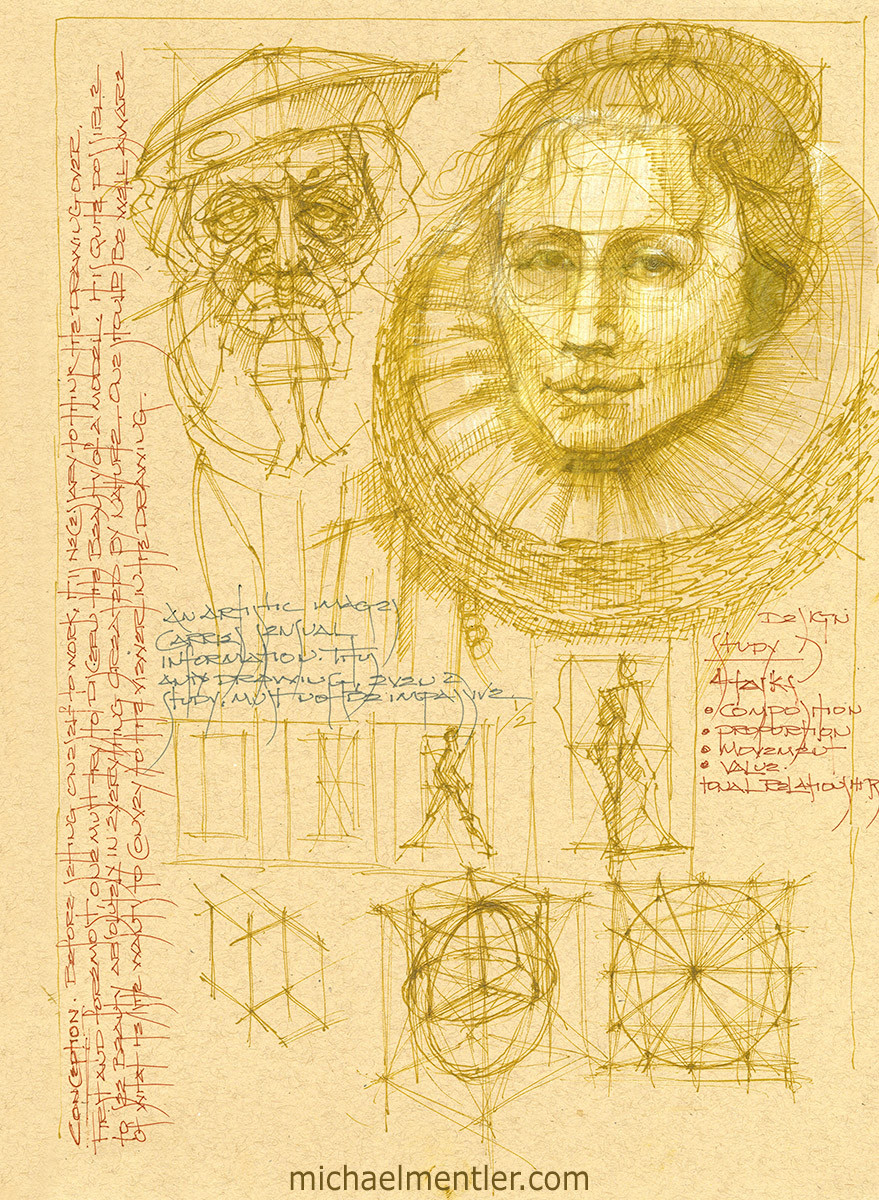 CONCEPTION. BEFORE SETTING ONESELF TO WORK, IT IS NECESSARY TO THINK THE DRAWING OVER.
FIRST AND FOREMOST ONE MUST TRY TO DISCERN THE BEAUTY OF A MODEL. IT IS QUITE POSSIBLE
TO SEE BEAUTY ABSOLUTELY IN EVERYTHING CREATED BY NATURE. ONE SHOULD BE WELL AWARE
OF WHAT HE/SHE WANTS TO CONVEY TO THE VIEWER IN THE DRAWING.
AN ARTISTIC IMAGE
CARRIES SENSUAL
INFORMATION. THUS
ANY DRAWING, EVEN A
STUDY, MUST NOT BE IMPASSIVE.
DESIGN
STUDY
4 TASKS
• COMPOSITION
• PROPORTION
• MOVEMENT
• VALUE.
TONAL RELATIONSHIPS
michaelmentler.com